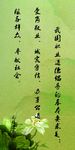 我国职业道德倡导的基本要求是：
爱岗敬业、诚实守信、办事公道、
服务群众、奉献社会。